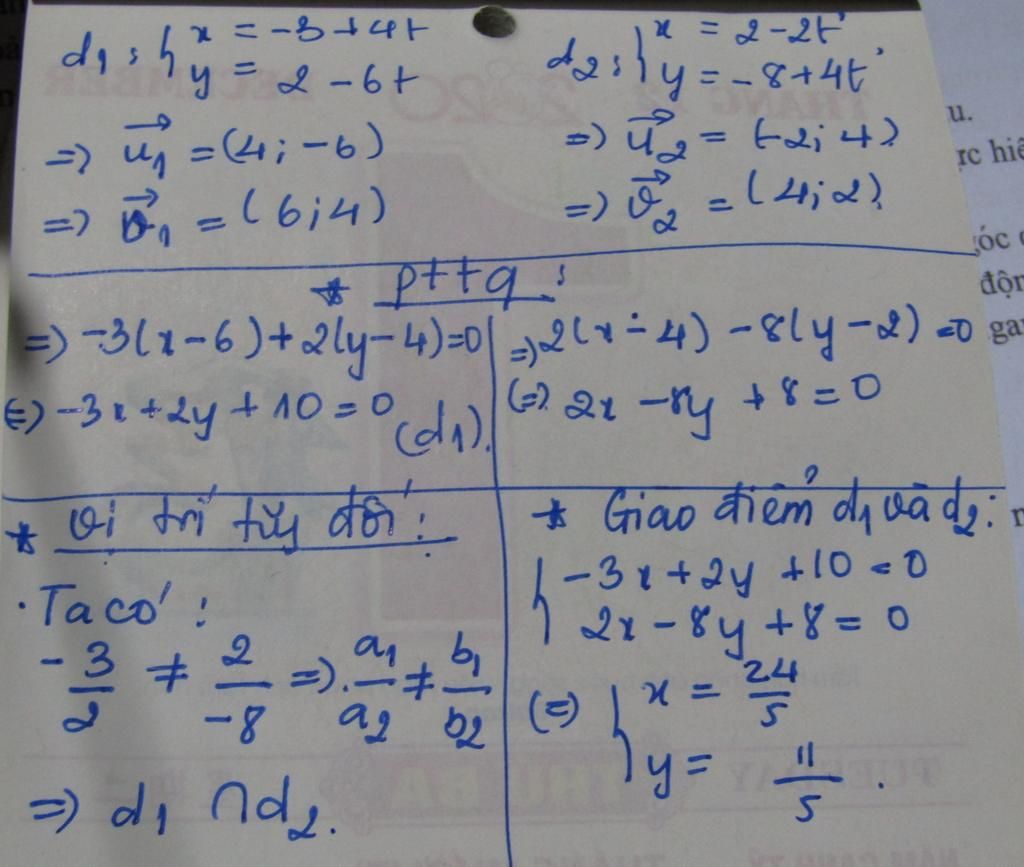 d1: { x = -3 + 4t
y = 2 - 6t
=> u1 = (4; -6)
=> v1 = (6; 4)
d2: { x = 2 - 2t'
y = -8 + 4t'
=> u2 = (-2; 4)
=> v2 = (4; 2).
* pttq:
=> -3(x - 6) + 2(y - 4) = 0
(=) -3x + 2y + 10 = 0 (d1).
=> 2(x - 4) - 8(y - 2) = 0
(=) 2x - 8y + 8 = 0
* Vị trí tữg đối:
. Ta có:
-3/2 ≠ 2/-8 => a1/a2 ≠ b1/b2
=> d1 ∩ d2.
* Giao điểm d1 và d2:
{ -3x + 2y + 10 = 0
2x - 8y + 8 = 0
(=) { x = 24/5
y = 11/5.
u.
óc
độn